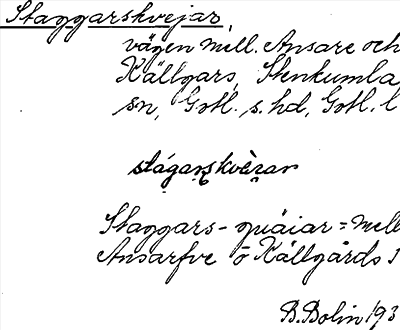 Staggarskvejar,
vägen mell. Ansare och
Källgars, Stenkumla
sn, Gotl. s. hd, Gotl. l
stágarskvèrar
Staggars-quäiar = mell
Ansarfve o Källgårds
B. Bolin 193